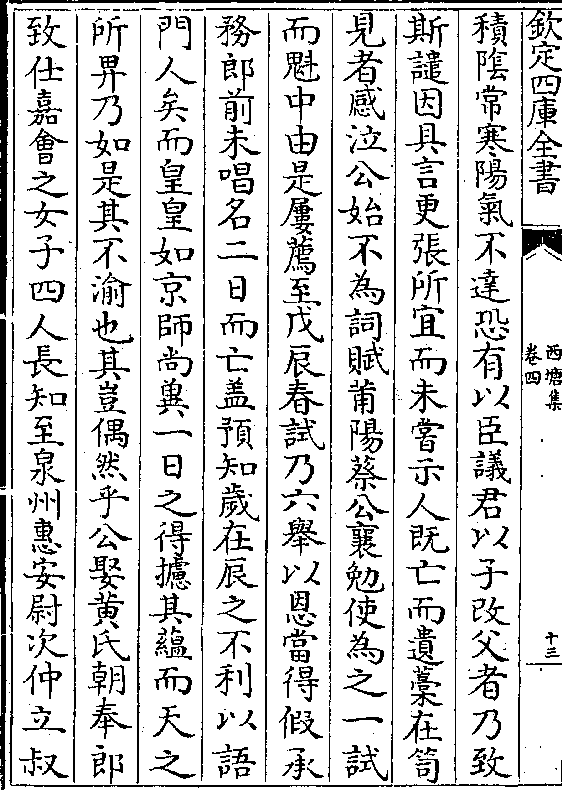 欽定四庫全書
西塘集
卷四
十三
積陰常寒陽氣不達恐有以臣議君以子改父者乃致
斯譴因具言更張所宜而未嘗示人既亡而遺藁在笥
見者感泣公始不為詞賦莆陽蔡公襄勉使為之一試
而魁中由是屢薦至戊辰春試乃六舉以恩當得假承
務郎前未唱名二日而亡盖預知歲在辰之不利以語
門人矣而皇皇如京師尚兾一日之得攄其藴而天之
所畀乃如是其不渝也其豈偶然乎公娶黄氏朝奉郎
致仕嘉會之女子四人長知至泉州惠安尉次仲立叔